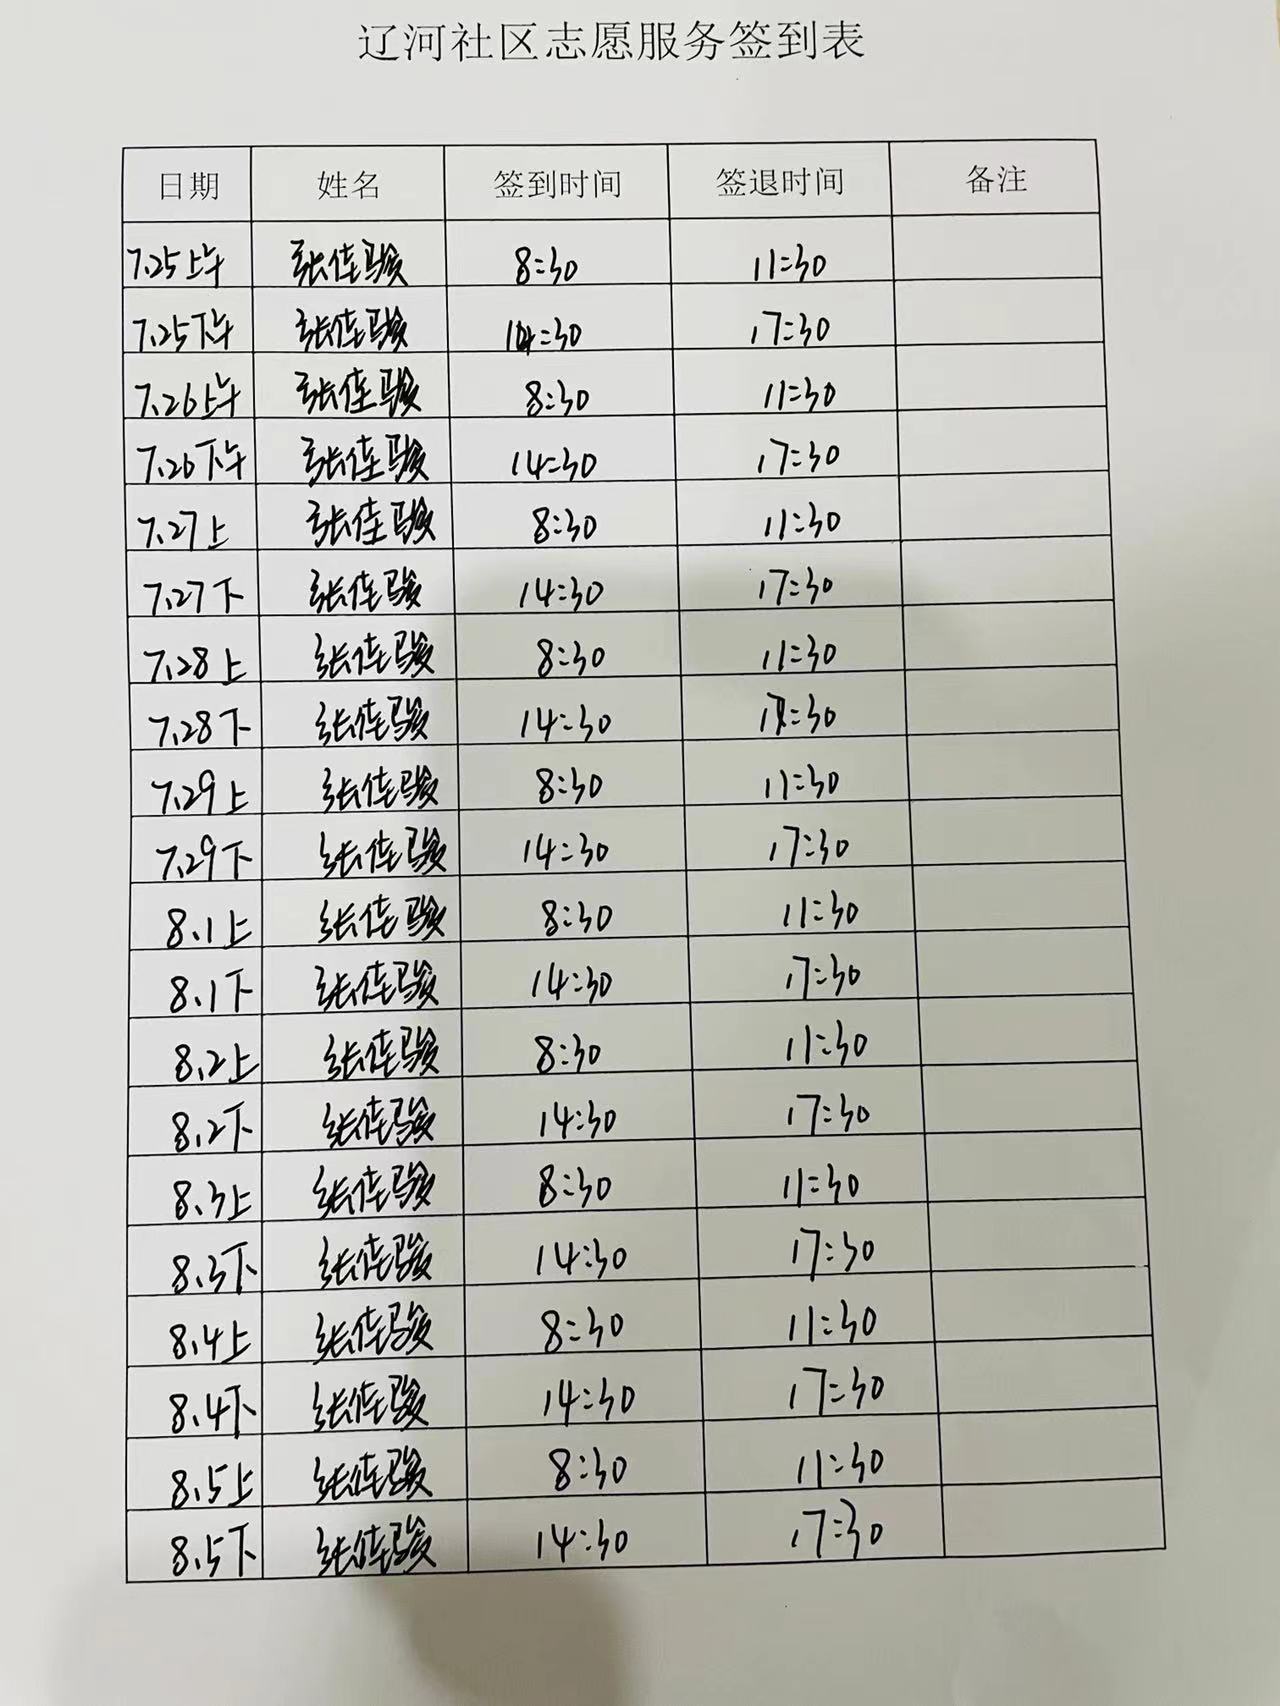 辽河社区志愿服务签到表
日期 姓名 签到时间 签退时间 备注
7.25上午 张佳骏 8:30 11:30
7.25下午 张佳骏 14:30 17:30
7.26上午 张佳骏 8:30 11:30
7.26下午 张佳骏 14:30 17:30
7.27上 张佳骏 8:30 11:30
7.27下 张佳骏 14:30 17:30
7.28上 张佳骏 8:30 11:30
7.28下 张佳骏 14:30 17:30
7.29上 张佳骏 8:30 11:30
7.29下 张佳骏 14:30 17:30
8.1上 张佳骏 8:30 11:30
8.1下 张佳骏 14:30 17:30
8.2上 张佳骏 8:30 11:30
8.2下 张佳骏 14:30 17:30
8.3上 张佳骏 8:30 11:30
8.3下 张佳骏 14:30 17:30
8.4上 张佳骏 8:30 11:30
8.4下 张佳骏 14:30 17:30
8.5上 张佳骏 8:30 11:30
8.5下 张佳骏 14:30 17:30